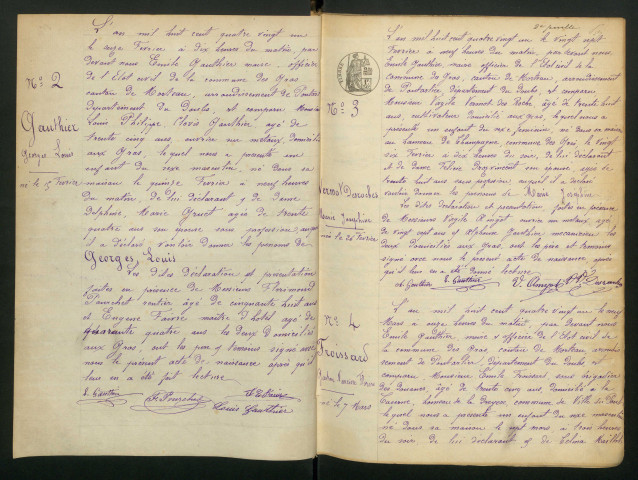 L'an mil huit cent quatre vingt un
le seize Fevrier à dix heures du matin, par
devant nous Emile Gauthier maire, officier
de l'Etat civil de la commune des Gras
canton de Morteau, arrondissement de Pontarlier
département du Doubs et comparu Monsieur
Louis Philippe Clovis Gauthier, agé de
trente cinq ans, ouvrier en métaux domicilié
aux Gras lequel nous a présenté un
enfant du sexe masculin, né dans sa
maison le quinze Fevrier à neuf heures
du matin, de lui déclarant et de Dame
Delphine, Marie Gruet agée de trente
quatre ans son épouse sans profession, auquel
il a déclaré vouloir donner les prénoms de
Georges, Louis
Les dites Déclaration et présentation
faites en présence de Messieurs Florimond
Pourchet rentier âgé de cinquante huit ans
et Eugène Faivre maître d'hôtel agé de
quarante quatre ans les deux Domiciliés
aux Gras, ont les père et témoins signé avec
nous le présent acte de naissance après qu'il
leur en a été fait lecture
E. Gauthier
F. Pourchet
E. Faivre
Louis Gauthier
N°. 2
Gauthier
Georges Louis
né le 15 Fevrier
L'an mil huit cent quatre vingt un le vingt sept
Fevrier à neuf heures du matin, par devant nous
Emile Gauthier, maire officier de l'Etat civil de la
commune des Gras, canton de Morteau, arrondissement
de Pontarlier, département du Doubs, et comparu
Monsieur Virgile Vermot des Roches, âgé de trente huit
ans, cultivateur domicilié aux Gras, lequel nous a
présenté un enfant du sexe féminin, né dans sa maison
au hameau de commune des Gras, le vingt
six Fevrier à dix heures du soir, de lui déclarant
et de Dame son épouse agée de
trente huit ans sans profession auquel il a déclaré
vouloir donner les prénoms de Marie Joséphine
Les dites déclaration et présentation faites en présence
de Messieurs Virgile ouvrier en métaux, agé
de vingt ans et Alphonse Gauthier mécanicien les
deux domiciliés aux Gras, ont les père et témoins
signé avec nous le présent acte de naissance après
qu'il leur en a été donné lecture
A. Gauthier
E. Gauthier
N°. 3
Vermot Desroches
Marie Joséphine
née le 26 Fevrier
N°. 4
Froissard
né le 7 Mars
L'an mil huit cent quatre vingt un le
Mars à onze heures du matin, par devant nous
Emile Gauthier, maire et officier de l'Etat civil de
la commune des Gras canton de Morteau arrondissement
de Pontarlier, Département du Doubs, et
comparu Monsieur Emile Froissard sous brigadier
des Douanes, âgé de trente cinq ans, domicilié à la
commune de Ville du Pont
lequel nous a présenté un enfant du sexe masculin
né dans sa maison le sept mars à trois heures
du soir de lui déclarant et de Celina